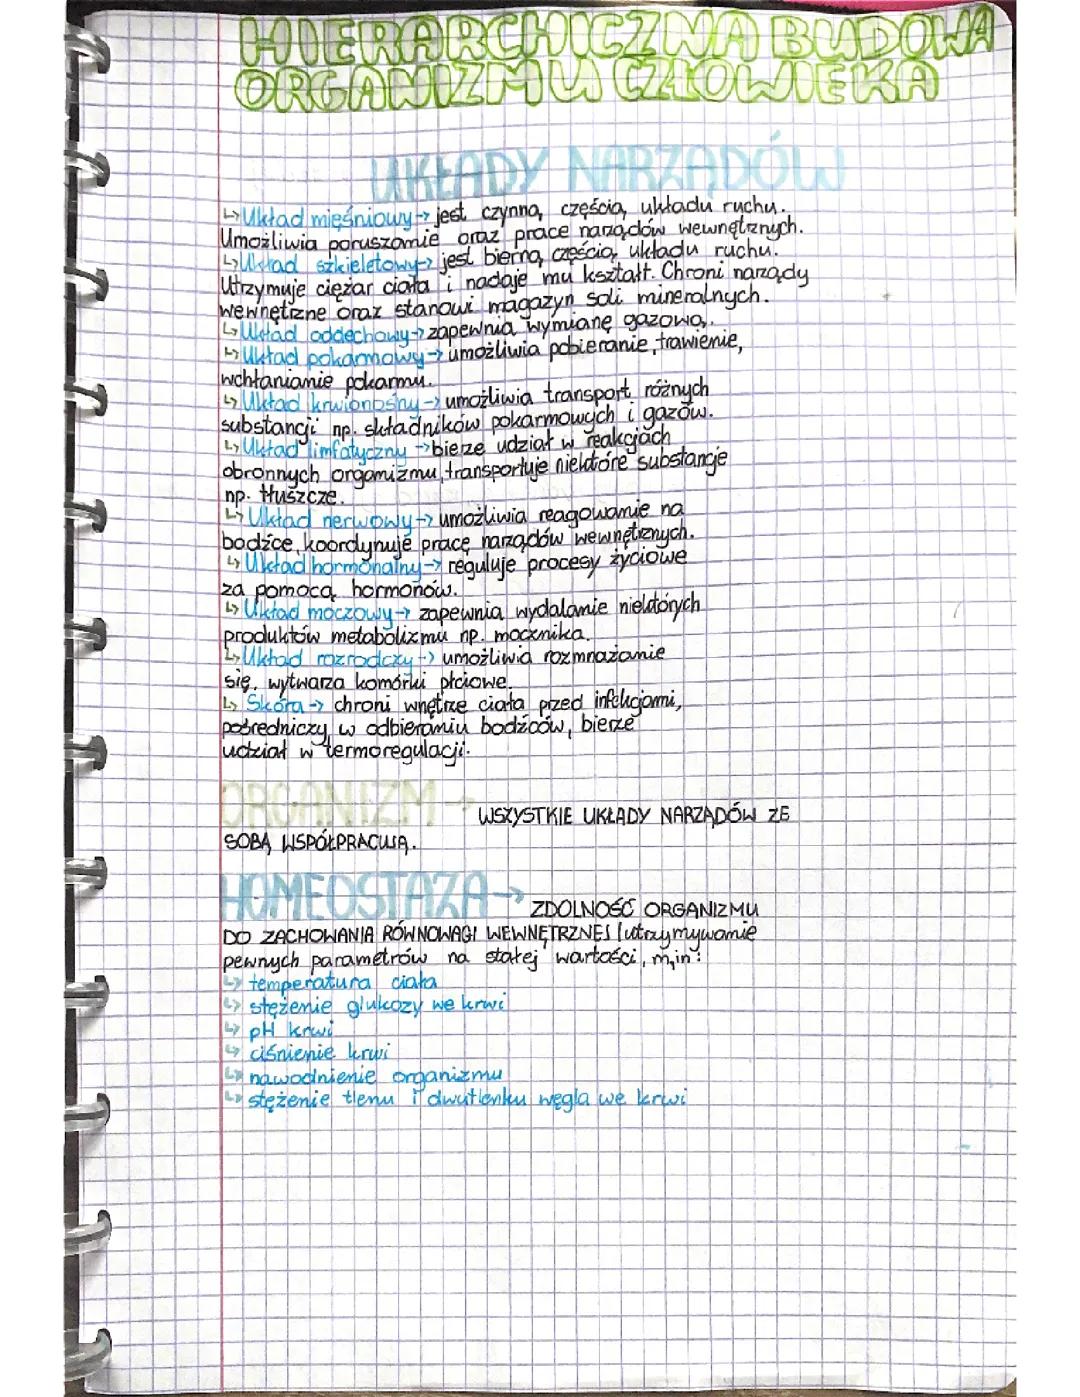 HIERARCHICZNA BUDOWA
ORGANIZMU CZŁOWIEKA
UKŁADY NARZĄDÓW
↳ Układ mięśniowy → jest czynną częścią układu ruchu.
Umożliwia poruszanie oraz prace narządów wewnętrznych.
↳ Układ szkieletowy → jest bierną częścią układu ruchu.
Utrzymuje ciężar ciała i nadaje mu kształt. Chroni narządy
wewnętrzne oraz stanowi magazyn soli mineralnych.
↳ Układ oddechowy → zapewnia wymianę gazową.
↳ Układ pokarmowy → umożliwia pobieranie, trawienie,
wchłanianie pokarmu.
↳ Układ krwionośny → umożliwia transport różnych
substancji np. składników pokarmowych i gazów.
↳ Układ limfatyczny → bierze udział w reakcjach
obronnych organizmu, transportuje niektóre substancje
np. tłuszcze.
↳ Układ nerwowy → umożliwia reagowanie na
bodźce, koordynuje pracę narządów wewnętrznych.
↳ Układ hormonalny → reguluje procesy życiowe
za pomocą hormonów.
↳ Układ moczowy → zapewnia wydalanie niektórych
produktów metabolizmu np. mocznika.
↳ Układ rozrodczy → umożliwia rozmnażanie
się, wytwarza komórki płciowe.
↳ Skóra → chroni wnętrze ciała przed infekcjami,
pośredniczy w odbieraniu bodźców, bierze
udział w termoregulacji.
ORGANIZM → WSZYSTKIE UKŁADY NARZĄDÓW ZE
SOBĄ WSPÓŁPRACUJĄ.
HOMEOSTAZA → ZDOLNOŚĆ ORGANIZMU
DO ZACHOWANIA RÓWNOWAGI WEWNĘTRZNEJ (utrzymywanie
pewnych parametrów na stałej wartości, m,in:
↳ temperatura ciała
↳ stężenie glukozy we krwi
↳ pH krwi
↳ ciśnienie krwi
↳ nawodnienie organizmu
↳ stężenie tlenu i dwutlenku węgla we krwi